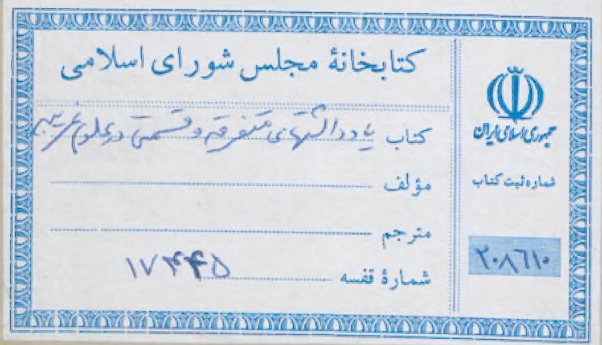 کتابخانهٔ مجلس شورای اسلامی
کتاب یادداشتهای متفرقه و قسمتی در علوم غریبه
مؤلف
مترجم
شمارهٔ قفسه ۱۷۴۴۵
جمهوری اسلامی ایران
شماره ثبت کتاب
۲۰۸۶۱۰